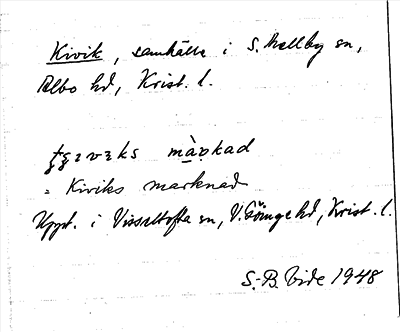 Kivik, samhälle i S. Mellby sn,
Albo hd, Krist. l.
màṛkad
= Kiviks marknad
Uppt. i Visseltofta sn, V. Göinge hd, Krist. l.
S.-B. Vide 1948